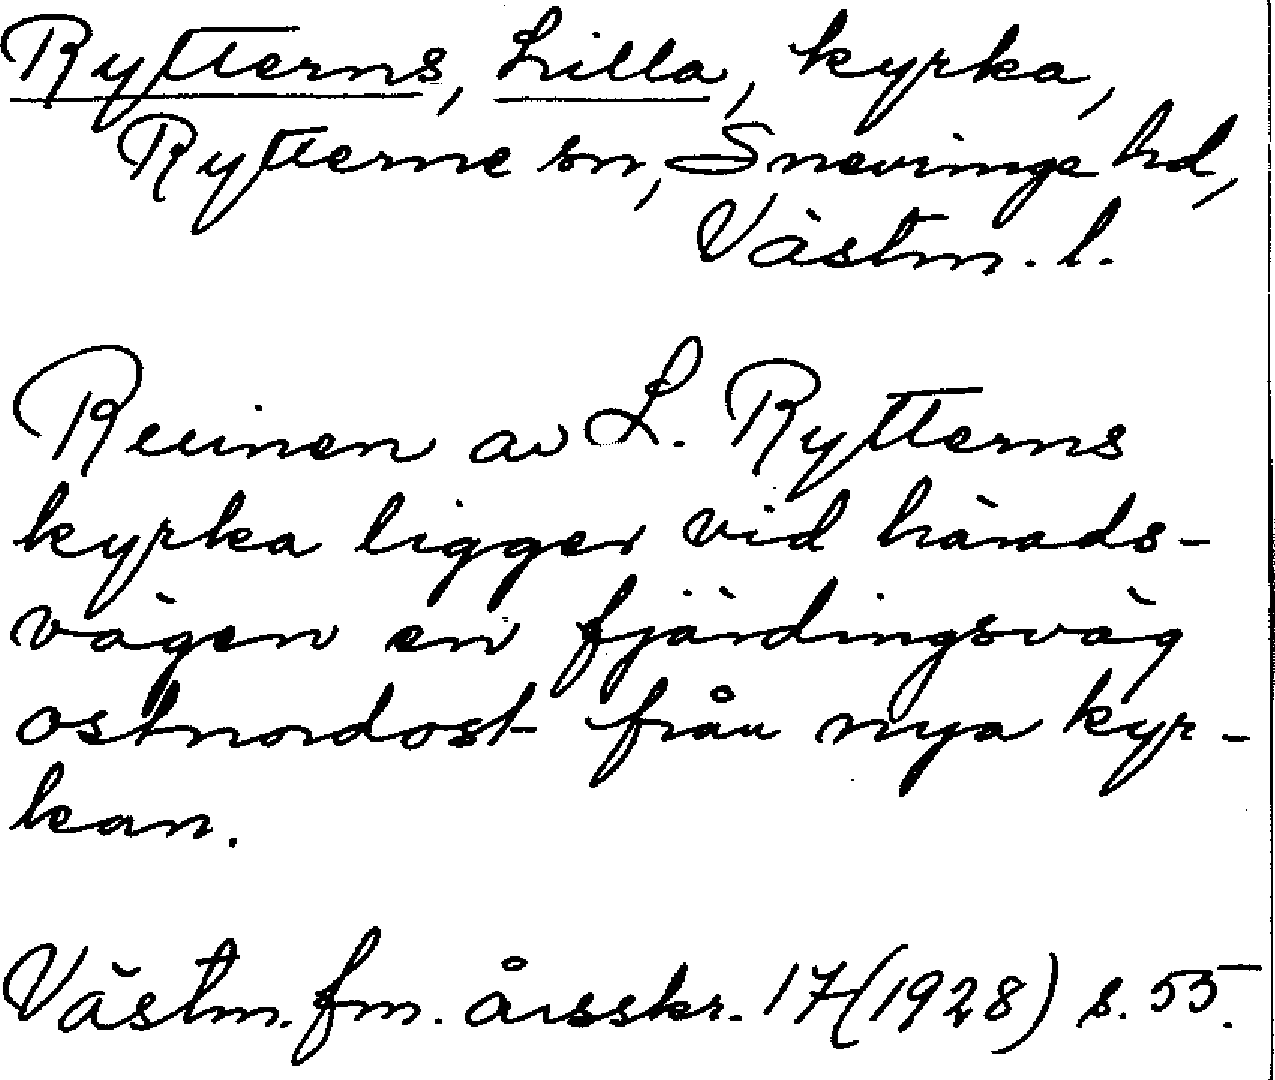 Rytterns, Lilla, kyrka,
Rytterne sn, Snevinge hd,
Västm. l.
Ruinen av L. Rytterns
kyrka ligger vid härads-
vägen en fjärdingsväg
ostnordost från nya kyr-
kan.
Västm. fm. årsskr. 17 (1928) s. 55.